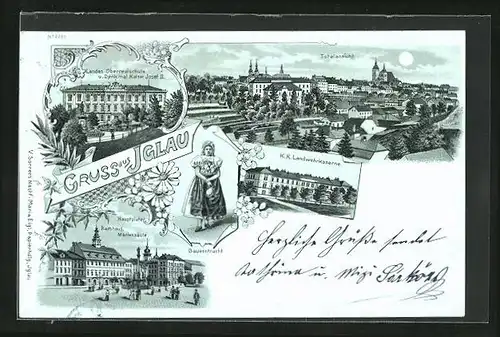 Landes Oberrealschule
u. Denkmal Kaiser Josef II.
Totalansicht
GRUSS aus IGLAU
K. K. Landwehrkaserne
Hauptplatz
Rathaus
Mariensäule
Bauerntracht
Herzliche Grüße sendet
u. Mizi